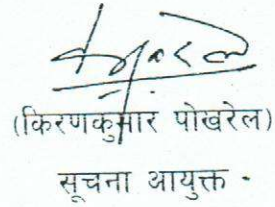 (किरणकुमार पोखरेल)
सूचना आयुक्त -